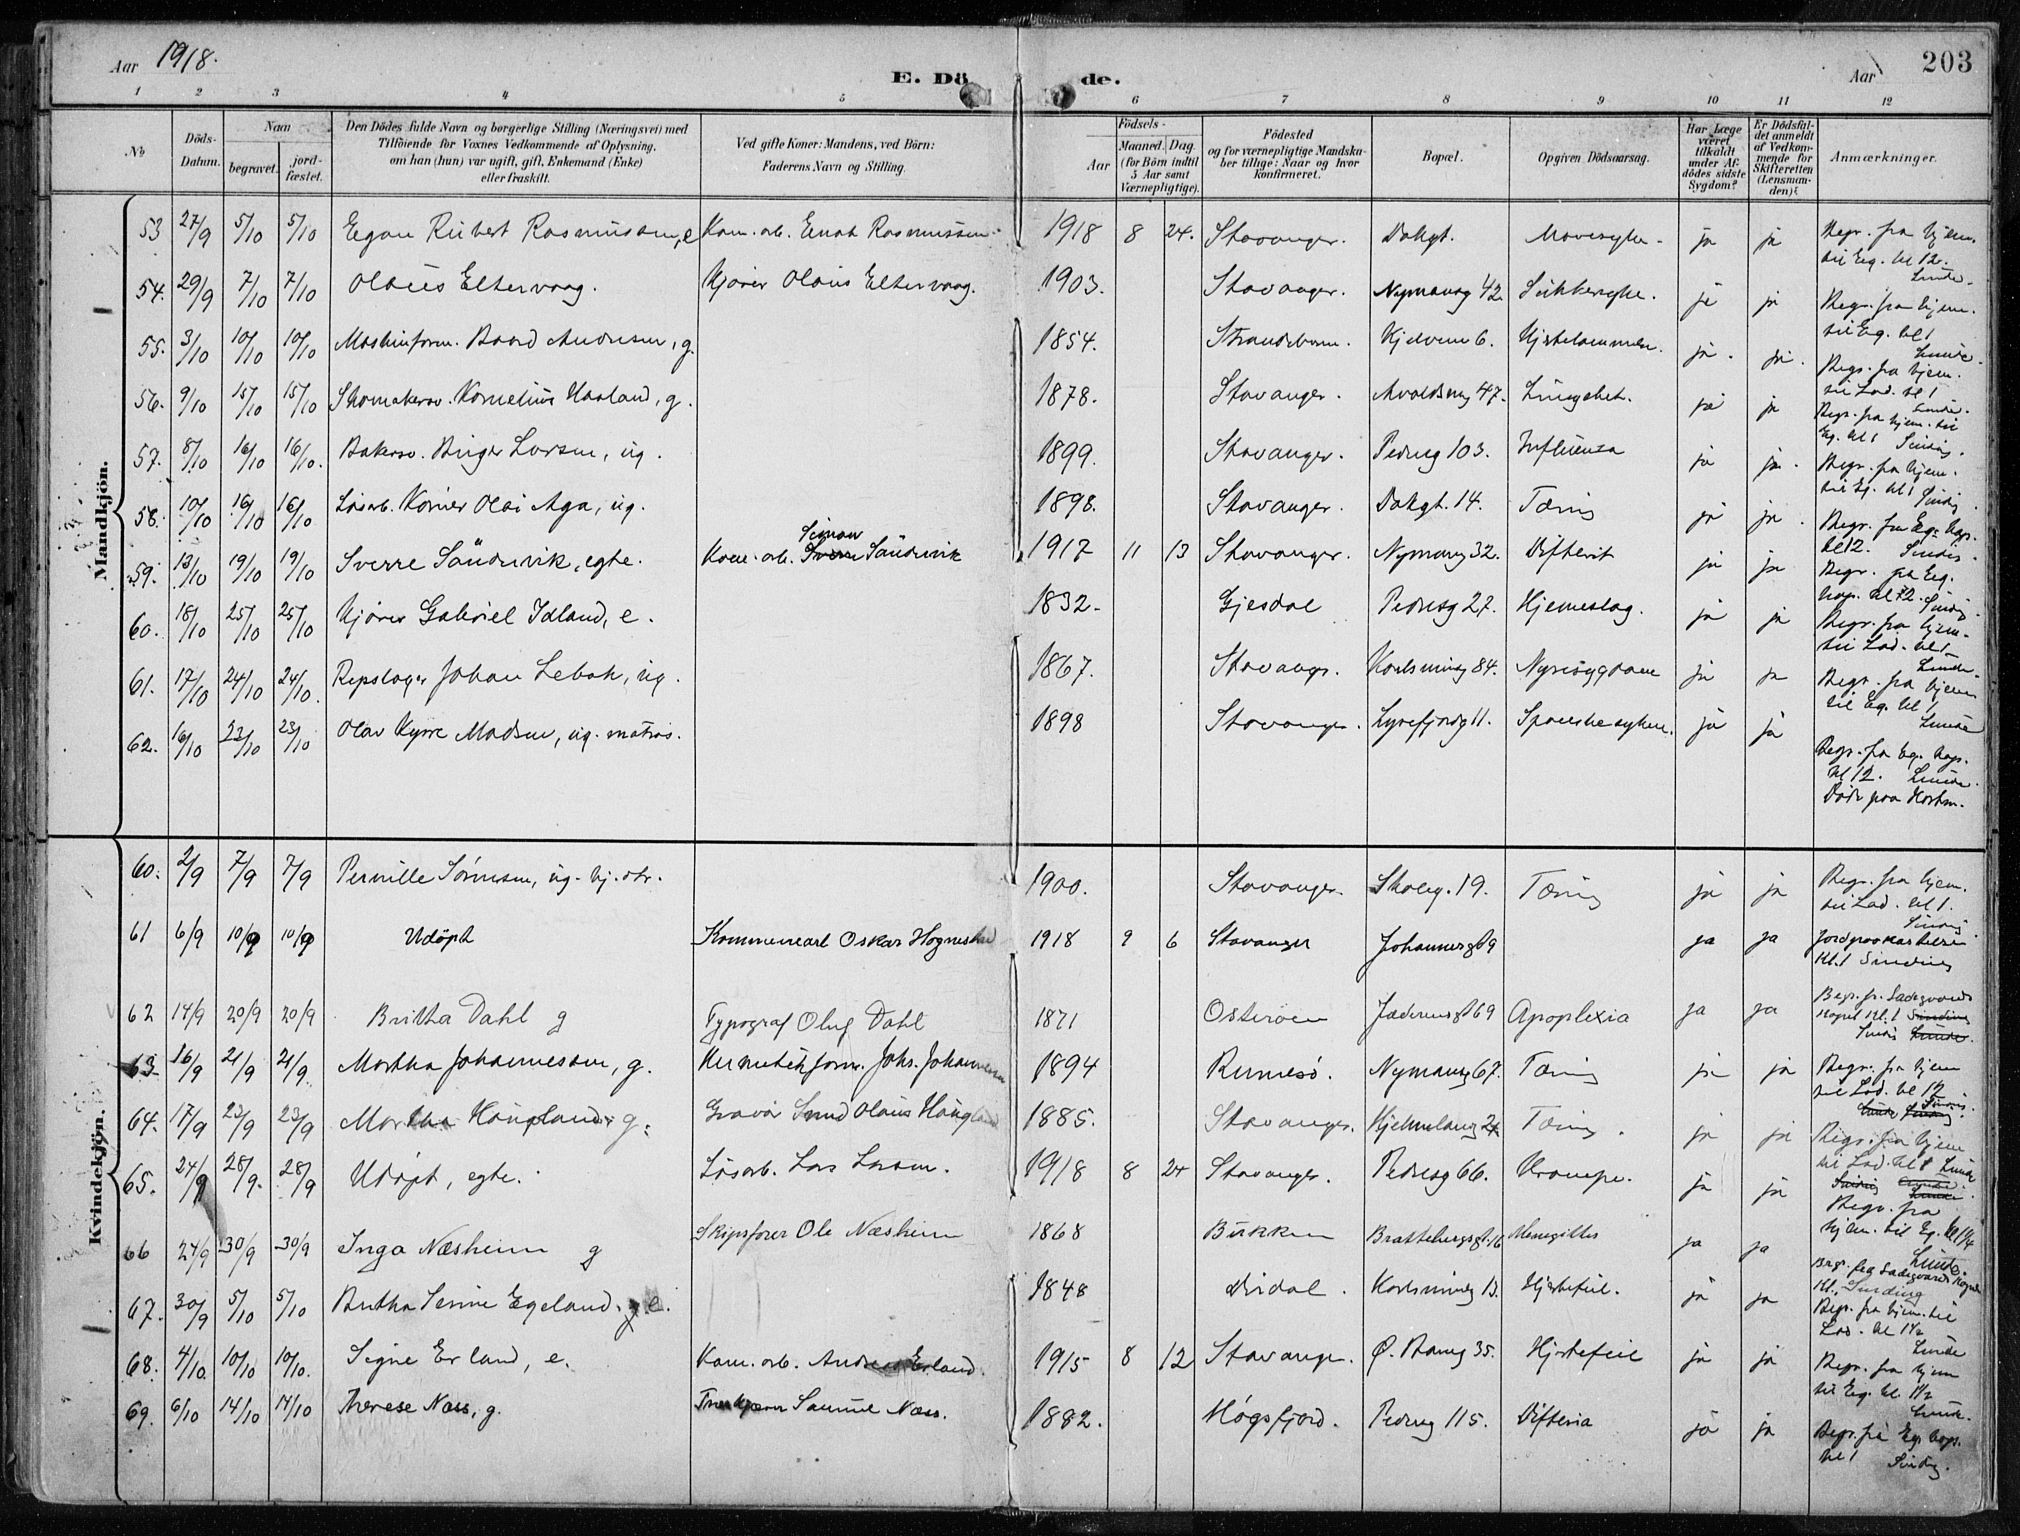 Aar 1918.
E. Dö de.
Aar
203
1 2 3 4 5 6 7 8 9 10 11 12
No
Döds-Datum.
Naar
begravet.
jord-fæstet.
Den Dödes fulde Navn og borgerlige Stilling (Næringsvei) med
Tilföiende for Voxnes Vedkommende af Oplysning,
om han (hun) var ugift, gift, Enkemand (Enke)
eller fraskilt.
Ved gifte Koner: Mandens, ved Börn:
Faderens Navn og Stilling.
Födsels-
Aar
Maaned. Dag
(for Börn indtil
5 Aar samt
Værnepligtige).
Födested
og for værnepligtige Mandska-
ber tillige: Naar og hvor
konfirmeret.
Bopæl.
Opgiven Dödsaarsag.
Har Læge
været
tilkaldt
under Af-
dödes sidste
Sygdom?
Er Dödsfal-
det anmeldt
af Vedkom-
mende for
Skifteretten
(Lensman-
den)?
Anmærkninger.
Mandkjön.
53 27/9 5/10 5/10 Egon Rubert Rasmussen, e Kom. arb. Rasmussen 1918 8 24. Stavanger. Dokgt. Mavesyke ja ja Begr. fra hjem. til Eig. kl 12. Lunde.
54. 29/9 7/10 7/10 Olaus Eltervaag. Kjører Olaus Eltervaag. 1903. Stavanger. Nymansg 42. Sukkersyke. ja ja Begr. fra hjem. til Eig. kl 1 Lunde.
55. 3/10 10/10 10/10 Maskinform. Baard Andresen, g. 1854. Strandebarm. Kjelvene 6. Hjertelammelse. ja. ja. Begr. fra hjem. til Lad. kl 1 Lunde.
56. 9/10 15/10 15/10 Skomakersv. Kornelius Haaland, g. 1878. Stavanger. 47. Lungebet. ja ja Begr. fra hjem. til Eg. kl 1 Sinding.
57. 8/10 16/10 16/10. Bakersv. Birger Larsen, ug. 1899. Stavanger. Pedersg 103. Influenza ja ja. Begr. fra hjem. til Eg. kl 1 Sinding
58. 10/10 16/10 16/10 Løsarb. Olai Aga, ug. 1898. Stavanger. Dokgt. 14. Tæring ja ja. Begr. fra Eg. kap. kl 12. Sinding.
59. 13/10 19/10 19/10 Sverre Sandvik, egte. Kom. arb. Simon Sandvik 1917 11 13 Stavanger. Nymansg 32. Difterit ja ja Begr. fra Eg. kap. kl 12. Sinding
60. 18/10 25/10 25/10 Kjører Gabriel Idland, e. 1832. Gjesdal Pedersg 27. Hjerneslag. ja ja Begr. fra hjem. til Lad. kl 1 Lunde.
61. 17/10 24/10 24/10. Repslager Johan Lebak, ug. 1867. Stavanger. Karlsminneg 84. Nyresygdom ja ja Begr. fra hjem til Eg. kl 1 Lunde
62. 16/10 23/10 23/10 Olav Kyrre Madsen, ug. matros. 1898 Stavanger. Lysefjordg 11. Spanskesyken. ja ja Begr. fra Eg. kap. kl 12. Lunde. Død paa Horten.
Kvindekjön.
60. 2/9 7/9 7/9 Pernille Sørensen, ug. hj. dtr. 1900. Stavanger. Skoleg. 19. Tæring ja ja Begr. fra hjem. til Lad. kl 1. Sinding
61 6/9 10/9 10/9 Udøpt Kommunearb Oskar Hognestad 1918 9 6 Stavanger Johannesgt 9 ja ja Jordpaakastelsen Kl. 1 Sinding
62 14/9 20/9 20/9 Britha Dahl g Typograf Oluf Dahl 1871 Osterøen Jæderensgt 69 Apoplexia ja ja Begr. fr. Ladegaards Kapel Kl. 1 Sinding Lunde.
63 16/9 21/9 21/9 Martha Johannessen, g. Hermetikform. Johs. Johannessen 1894 Rennesø. Nymansg 67. Tæring ja ja Begr. fra hjem til Lad. kl 12 Sinding. Lunde Sinding
64. 17/9 23/9 23/9 Martha Haugland, g. Gravør Olaus Haugland 1885. Stavanger. Kjelvelandsg 24 Tæring. ja ja Begr. fra hjem til Lad. kl 1 Lunde
65. 24/9 28/9. 28/9 Udøpt, egte. Løsarb. Lars Larsen. 1918 8 24 Stavanger. Pedersg 66. Krampe. ja ja Begr. fra hjem. til Eg. kl 1 1/4 Lunde.
66 24/9 30/9 30/9 Inga Næsheim g Skipsfører Ole Næsheim 1868 Bukken Brattebergsgt. 16 Menegittes ja ja Begr. fra Ladegaards Kapel Kl. 1 Sinding
67. 30/9 5/10 5/10 Bertha Serine Egeland. e. 1848 Dirdal. Karlsminneg 13. Hjertefeil. ja ja Begr. fra hjem. til Lad. kl 1 1/2 Lunde
68. 4/10 10/10 10/10. Signe Erland, e. Kom. arb. Andreas Erland. 1915 8 12 Stavanger. Ø. Baneg 35. Hjertefeil ja ja Begr. fra hjem til Eig. kl 1 1/2 Lunde.
69. 6/10 14/10 14/10 Therese Næss, g. Samuel Næss. 1882. Høgsfjord. Pedersg 115. Difteria ja ja Begr. fra Eg. kaps. kl 1 Sinding.